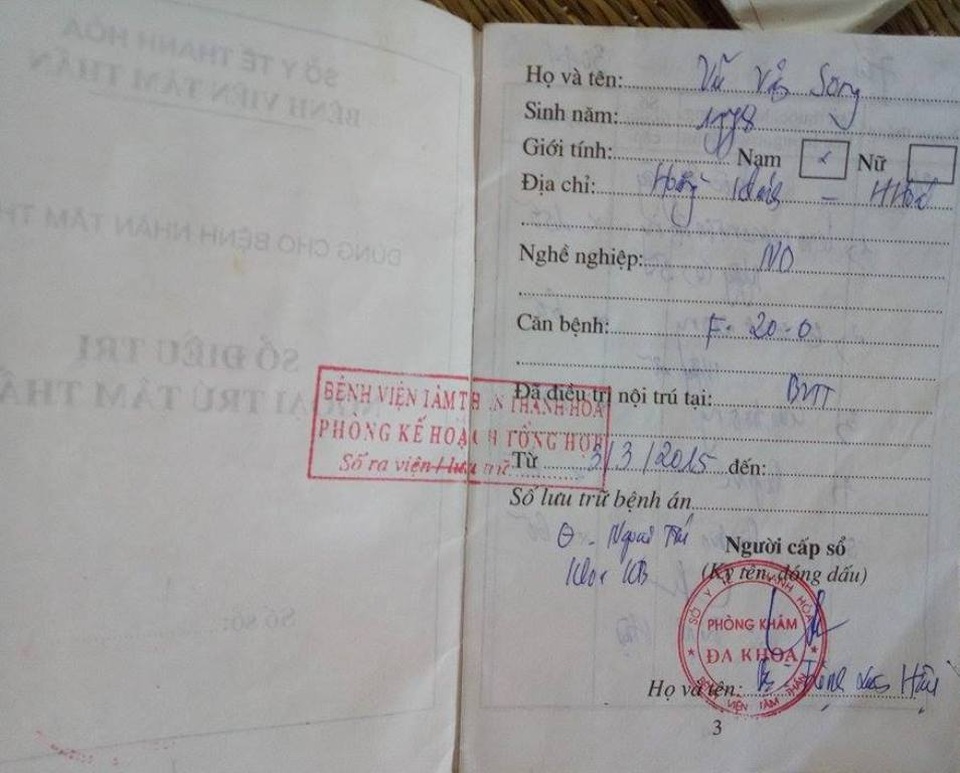 SỞ Y TẾ THANH HÓA
BỆNH VIỆN TÂM THẦN
DÙNG CHO BỆNH NHÂN TÂM TH
SỔ ĐIỀU TRỊ
NGOẠI TRÚ TÂM THẦ
Số sổ:
Họ và tên: Vũ Văn Song
Sinh năm: 1978
Giới tính: Nam x Nữ
Địa chỉ: Hoằng Khánh - HHóa
Nghề nghiệp:
Căn bệnh: F. 20-0
Đã điều trị nội trú tại: BVTT
Từ 3/3/2015 đến:
Số lưu trữ bệnh án
Ngoại Trú
Khoa KB
Người cấp sổ
(Ký tên, đóng dấu)
Họ và tên:
3
BỆNH VIỆN TÂM THẦN THANH HÓA
PHÒNG KẾ HOẠCH TỔNG HỢP
Số ra viện/lưu trữ
SỞ Y TẾ THANH HÓA
PHÒNG KHÁM
ĐA KHOA
BỆNH VIỆN TÂM THẦN